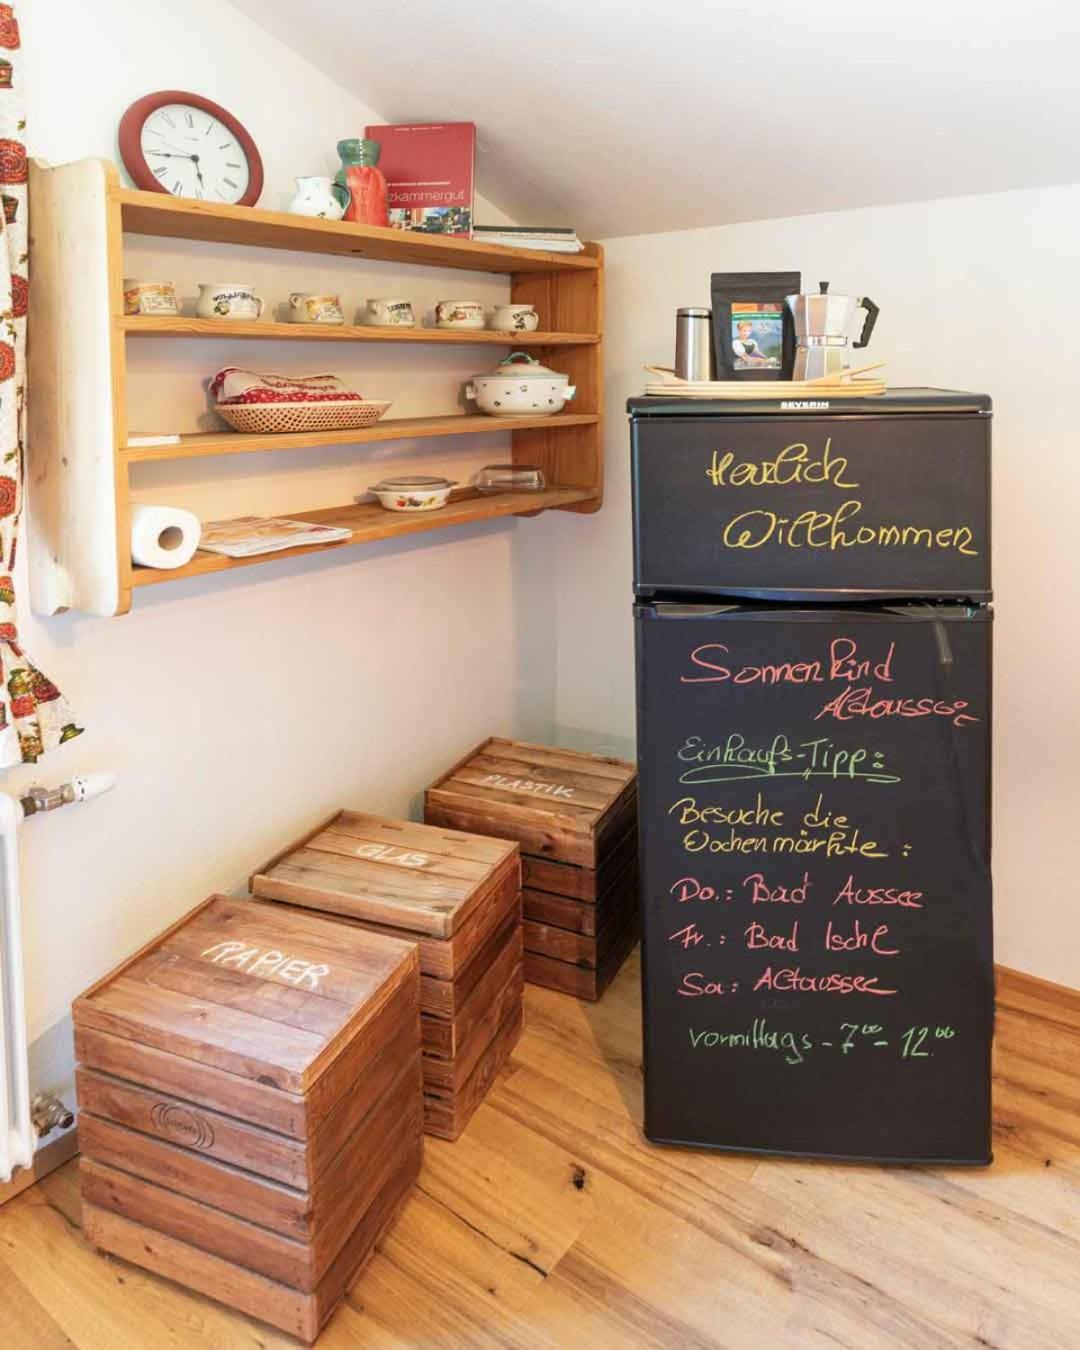 zkammergut
SEVERIN
Herzlich
Willkommen
Sonnenkind
Altaussee
Einkaufs-Tipp:
Besuche die
Wochenmärkte:
Do.: Bad Aussee
Fr.: Bad Ischl
Sa: Altaussee
vormittags - 7°° - 12.°°
PLASTIK
GLAS
PAPIER